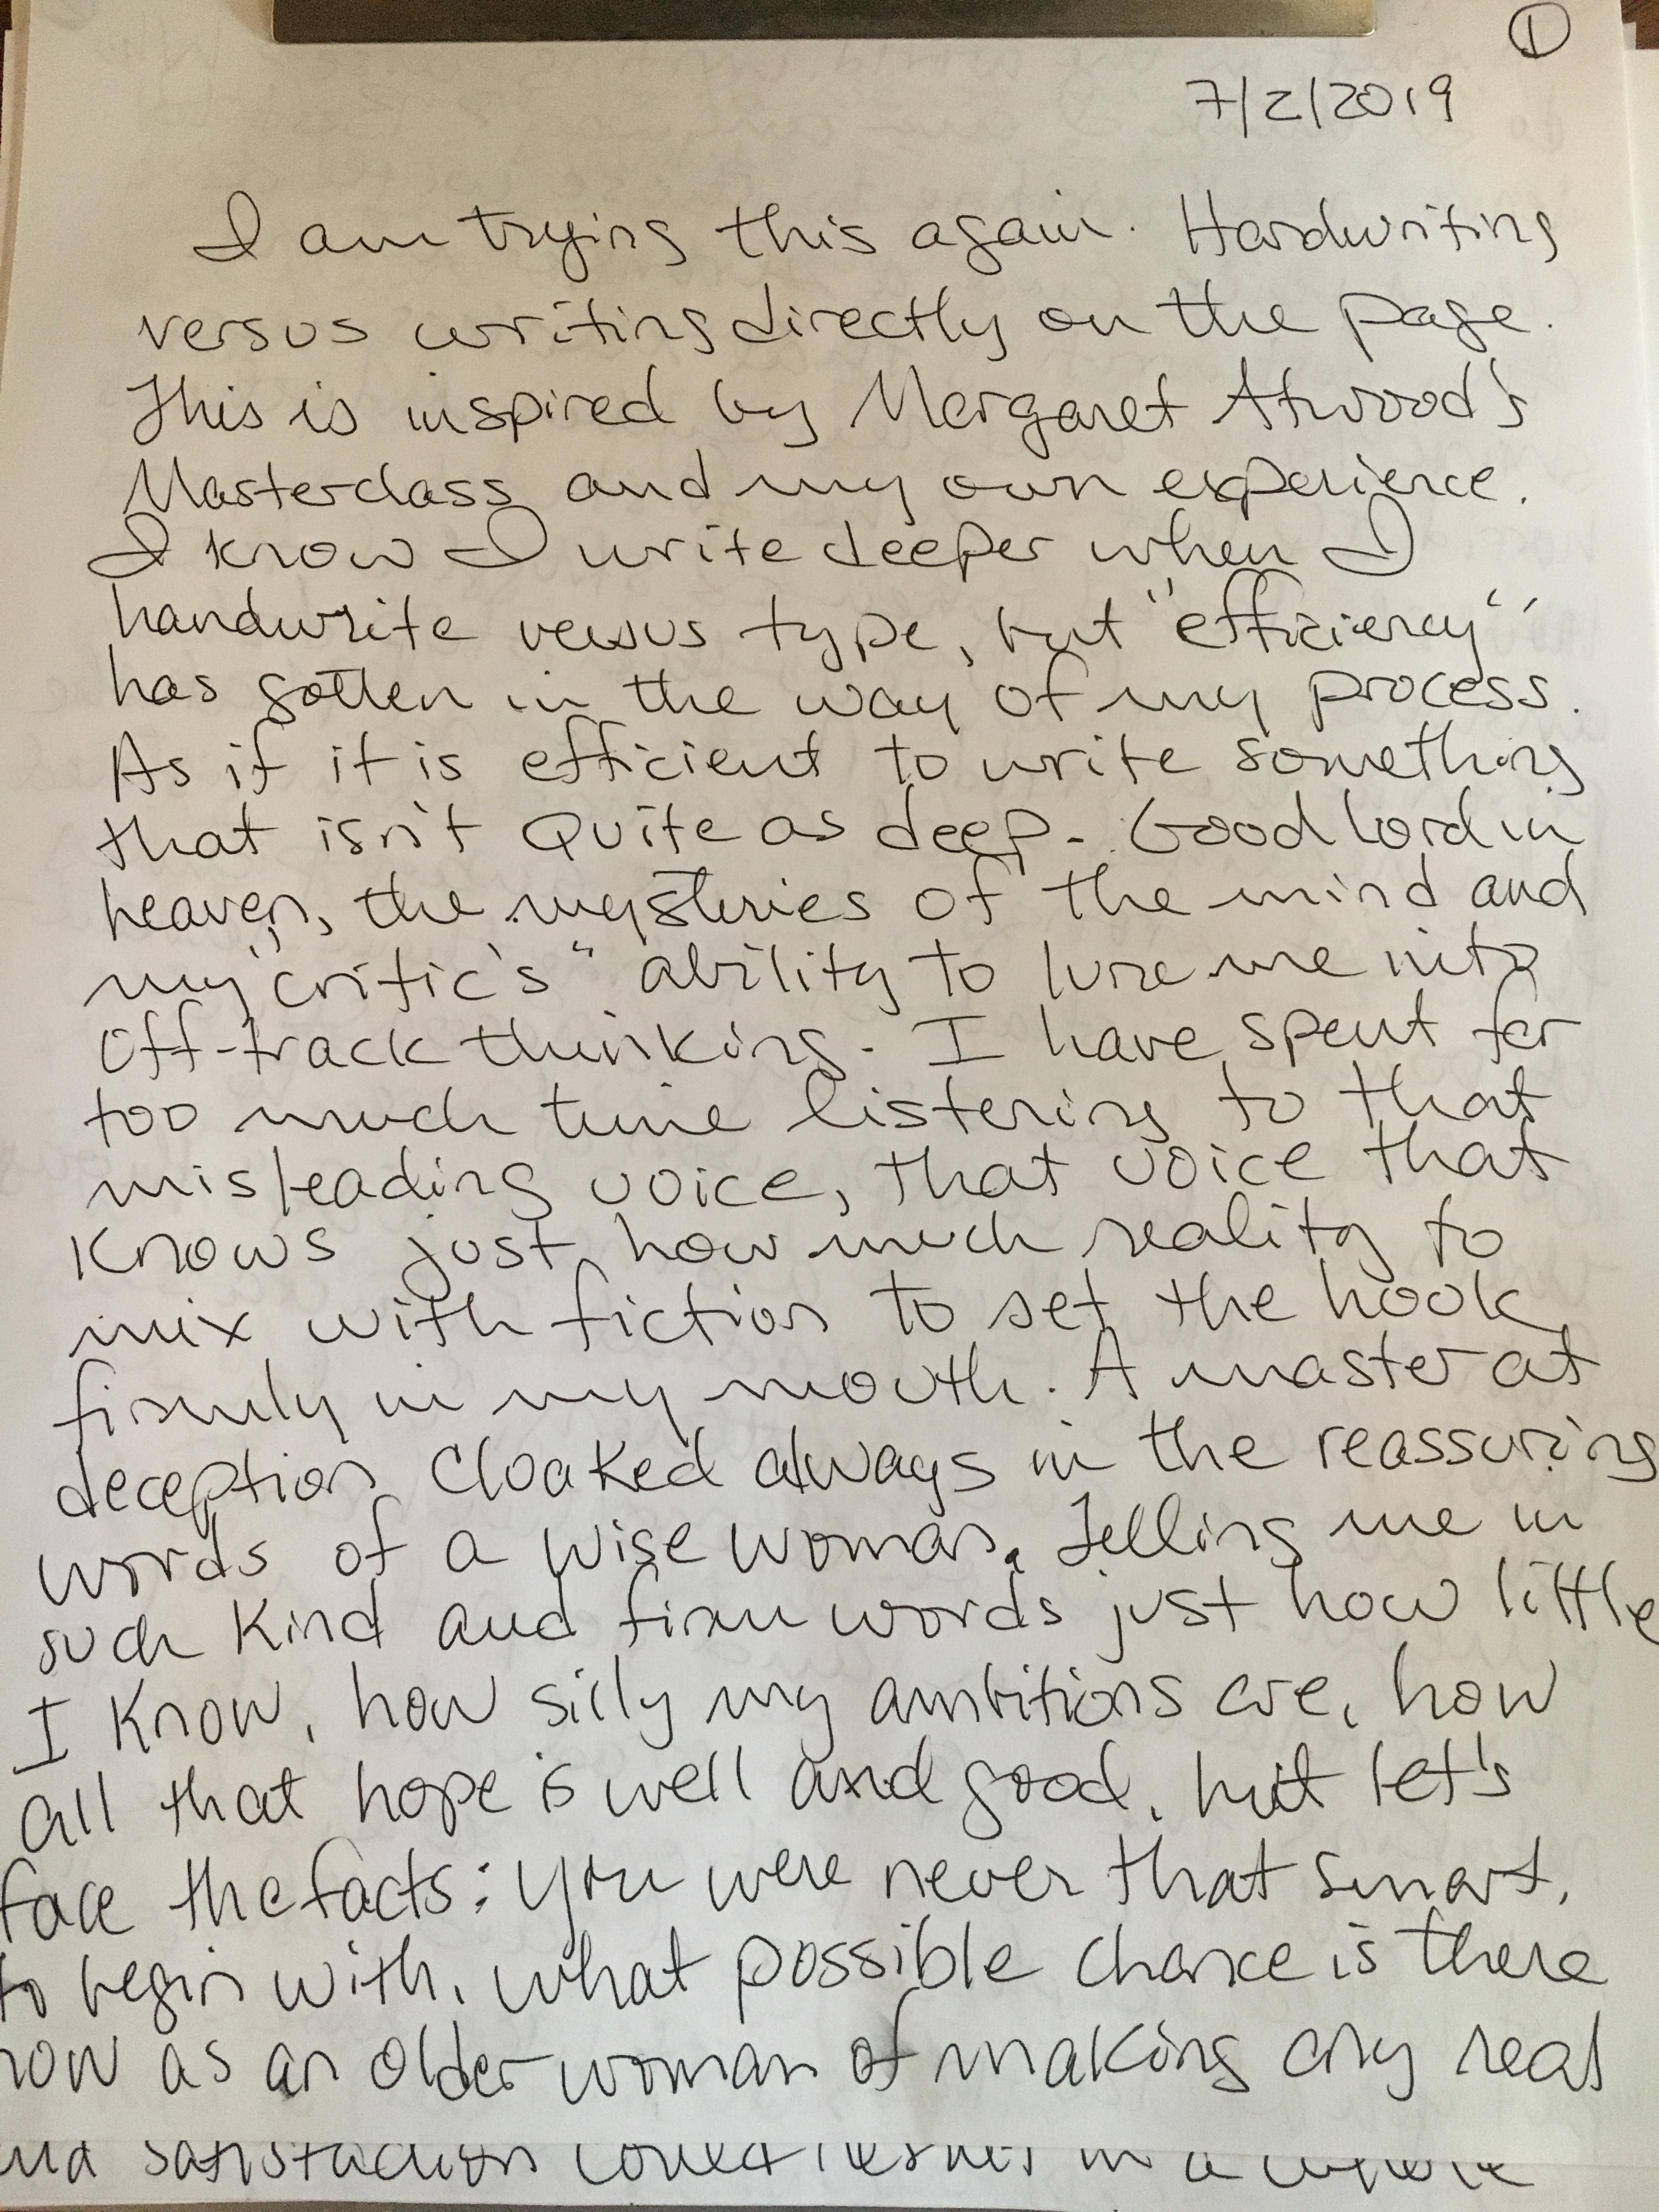 1
7/2/2019
I am trying this again. Handwriting
versus writing directly on the page.
This is inspired by Margaret Atwood's
Masterclass and my own experience.
I know I write deeper when I
handwrite versus type, but "efficiency"
has gotten in the way of my process.
As if it is efficient to write something
that isn't quite as deep. Good lord in
heaven, the mysteries of the mind and
my "critic's" ability to lure me into
off-track thinking. I have spent far
too much time listening to that
misleading voice, that voice that
knows just how much reality to
mix with fiction to set the hook
firmly in my mouth. A master at
deception cloaked always in the reassuring
words of a wise woman. Telling me in
such kind and firm words just how little
I know, how silly my ambitions are, how
all that hope is well and good, but let's
face the facts: you were never that smart,
to begin with, what possible chance is there
now as an older woman of making any real
satisfaction in a whole